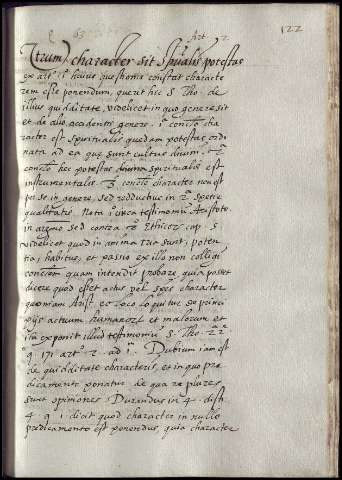 Art 2
122
Utrum character sit spūalis potestas
ex art. 1º huius questionis constat characte
rem esse ponendum, querit hic S. Tho. de
illius quidditate, videlicet in quo genere sit
et de alio accidentis genere. 1ª concl. cha
racter est spiritualis quedam potestas ordi
nata ad ea quę sunt cultus divini. 2ª
concl. hec potestas spiritualis est
instrumentalis. 3ª concl. character non est
per se in genere, sed reductive in 2ª specie
qualitatis. Nota circa testimonium Aristote.
in argum. sed contra 2º Ethicor. cap. 5
videlicet quod in anima tria sunt, poten
tia, habitus, et passio ex illo non colligi
conclōem quam intendit probare, quia posset
dicere quod esset actus vel spēs character
quoniam Arist. eo loco loquitur de princi
pijs actuum humanorū et malorum et
ita exponit illud testimoniū S. Tho. 2ª 2ª
q. 171 art. 2. ad 1. Dubium iam est
de quidditate characteris, et in quo pre
dicamento ponatur de qua re plures
sunt opiniones. Durandus in 4. dist.
4. q. 1. dicit quod character in nullo
predicamento est ponendus, quia character